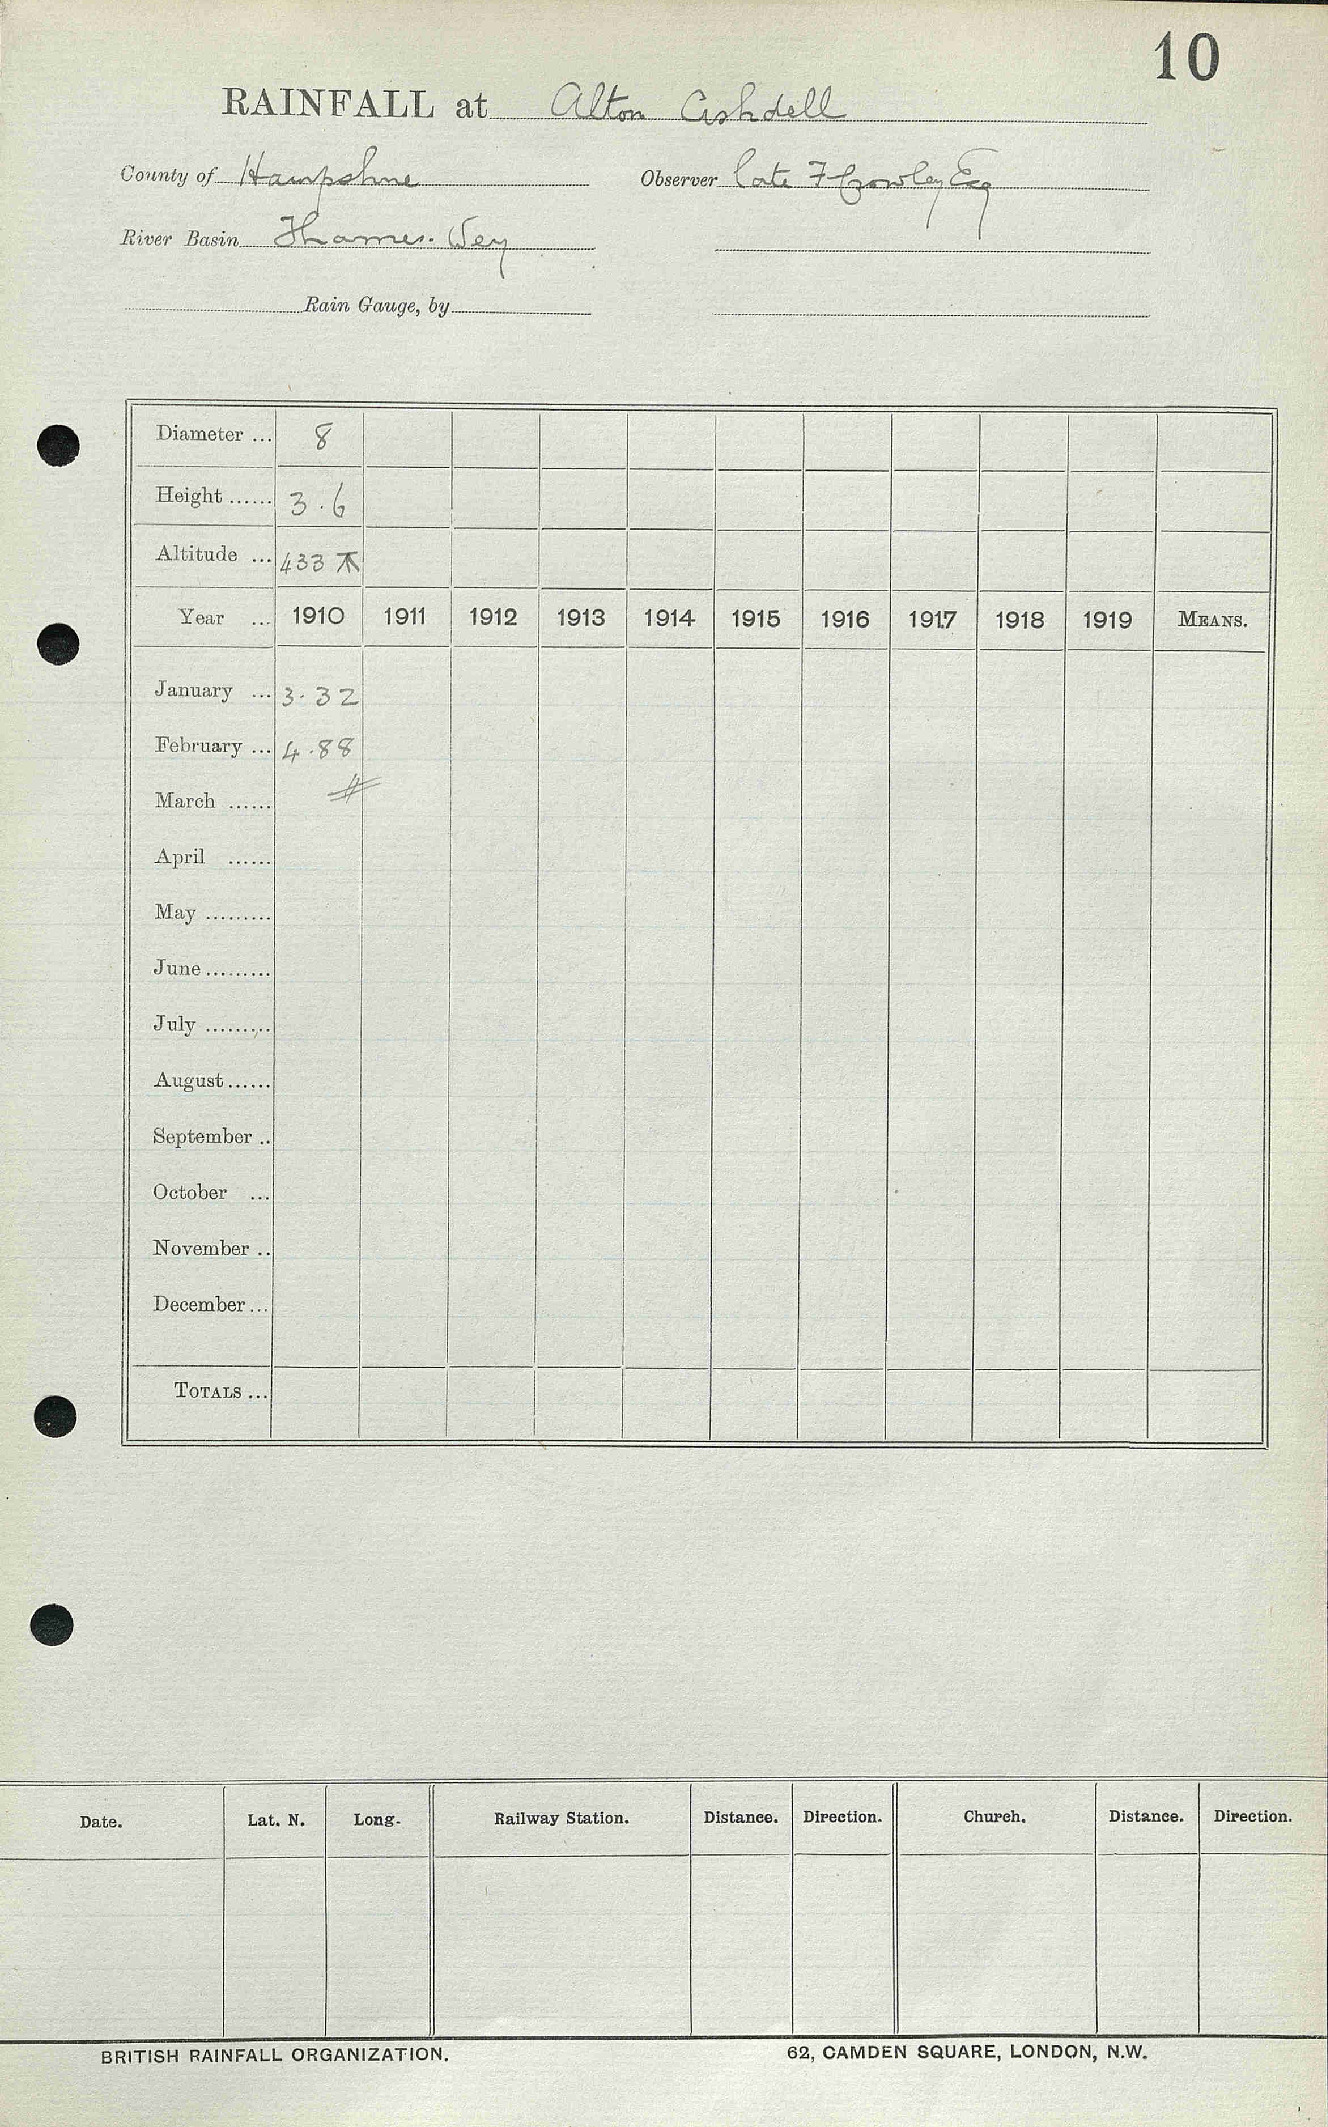 10
RAINFALL at Alton Ashdell
County of Hampshire Observer late F Crowley Esq
River Basin Thames. Wey
Rain Gauge, by
Diameter ... 8
Height ...... 3.6
Altitude ... 433
Year ... 1910 1911 1912 1913 1914 1915 1916 1917 1918 1919 MEANS.
January ... 3.32
February ... 4.88
March ......
April ......
May .........
June .........
July .........
August ......
September ..
October ...
November ..
December ...
TOTALS ...
Date. Lat. N. Long. Railway Station. Distance. Direction. Church. Distance. Direction.
BRITISH RAINFALL ORGANIZATION. 62, CAMDEN SQUARE, LONDON, N.W.